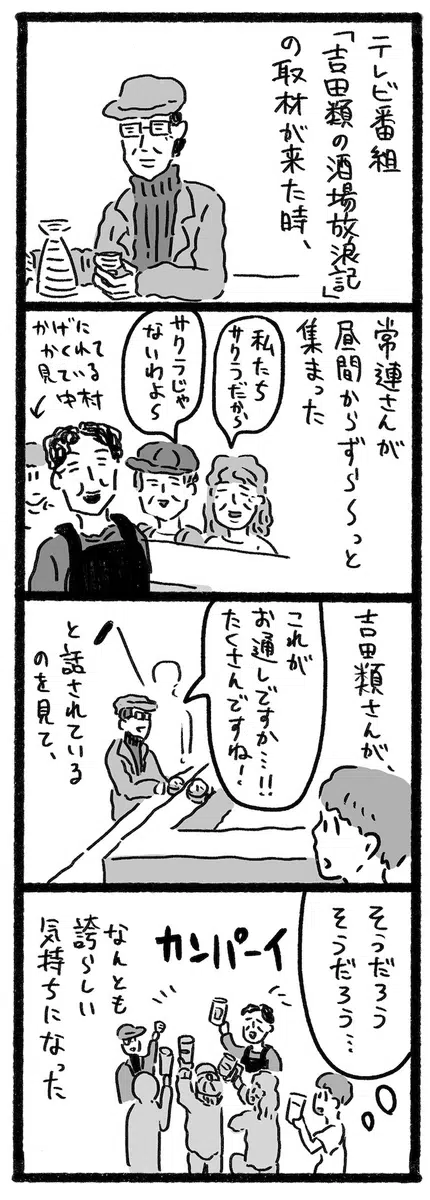 テレビ番組
「吉田類の酒場放浪記」
の取材が来た時、
常連さんが
昼間からずら〜〜っと
集まった
私たち
サクラだから
サクラじゃ
ないわよ〜
かげに
かくれて
見ている
中村
吉田類さんが、
これが
お通しですか…!!
たくさんですね!
と話されている
のを見て、
そうだろう
そうだろう…
カンパーイ
なんとも
誇らしい
気持ちになった